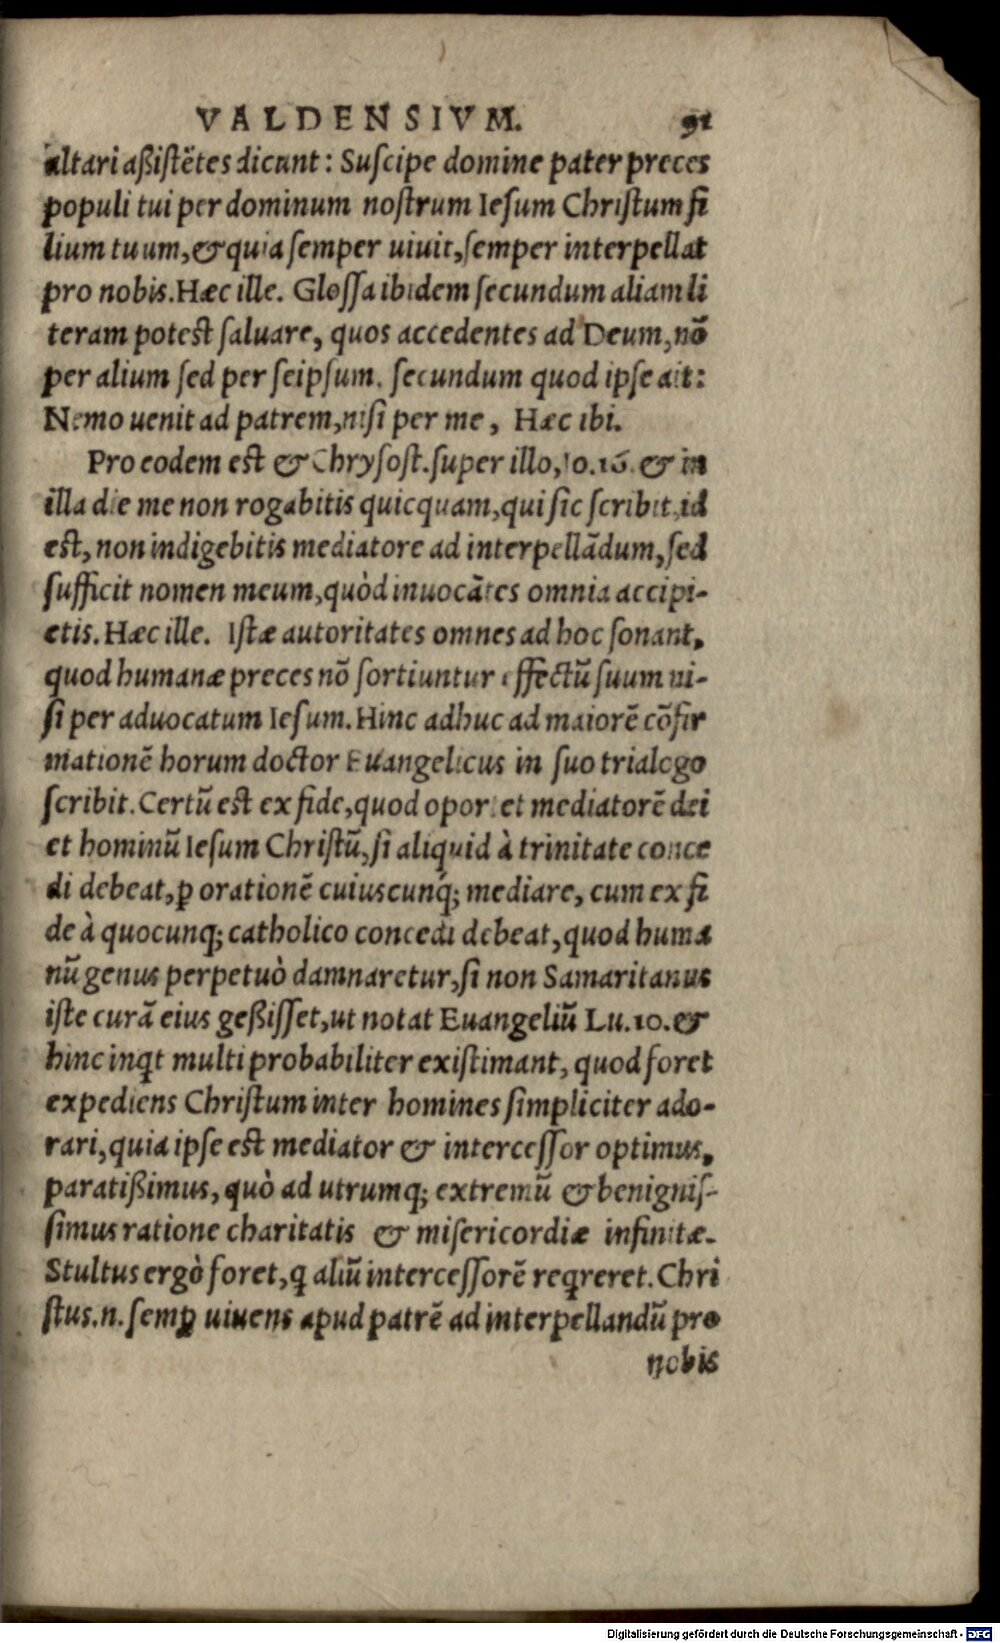 VALDENSIVM. 91
altari aßistẽtes dicunt: Suscipe domine pater preces
populi tui per dominum nostrum Iesum Christum fi
lium tuum, & quia semper uiuit, semper interpellat
pro nobis. Hæc ille. Glossa ibidem secundum aliam li
teram potest saluare, quos accedentes ad Deum, nõ
per alium sed per seipsum. secundum quod ipse ait:
Nemo uenit ad patrem, nisi per me, Hæc ibi.
Pro eodem est & Chrysost. super illo, Io. 16. & in
illa die me non rogabitis quicquam, qui sic scribit, id
est, non indigebitis mediatore ad interpellãdum, sed
sufficit nomen meum, quòd inuocãtes omnia accipi-
etis. Hæc ille. Istæ autoritates omnes ad hoc sonant,
quod humanæ preces nõ sortiuntur effectũ suum ni-
si per aduocatum Iesum. Hinc adhuc ad maiorẽ cõfir
mationẽ horum doctor Euangelicus in suo trialogo
scribit. Certũ est ex fide, quod oportet mediatorẽ dei
et hominũ Iesum Christũ, si aliquid à trinitate conce
di debeat, ꝑ orationẽ cuiuscunq́; mediare, cum ex fi
de à quocunq; catholico concedi debeat, quod huma
nũ genus perpetuò damnaretur, si non Samaritanus
iste curã eius geßisset, ut notat Euangeliũ Lu. 10. &
hinc inq̃t multi probabiliter existimant, quod foret
expediens Christum inter homines simpliciter ado-
rari, quia ipse est mediator & intercessor optimus,
paratißimus, quò ad utrumq; extremũ & benignis-
simus ratione charitatis & misericordiæ infinitæ.
Stultus ergò foret, q aliũ intercessorẽ reqreret. Chri
stus. n. semꝑ uiuens apud patrẽ ad interpellandũ pro
nobis
Digitalisierung gefördert durch die Deutsche Forschungsgemeinschaft - DFG